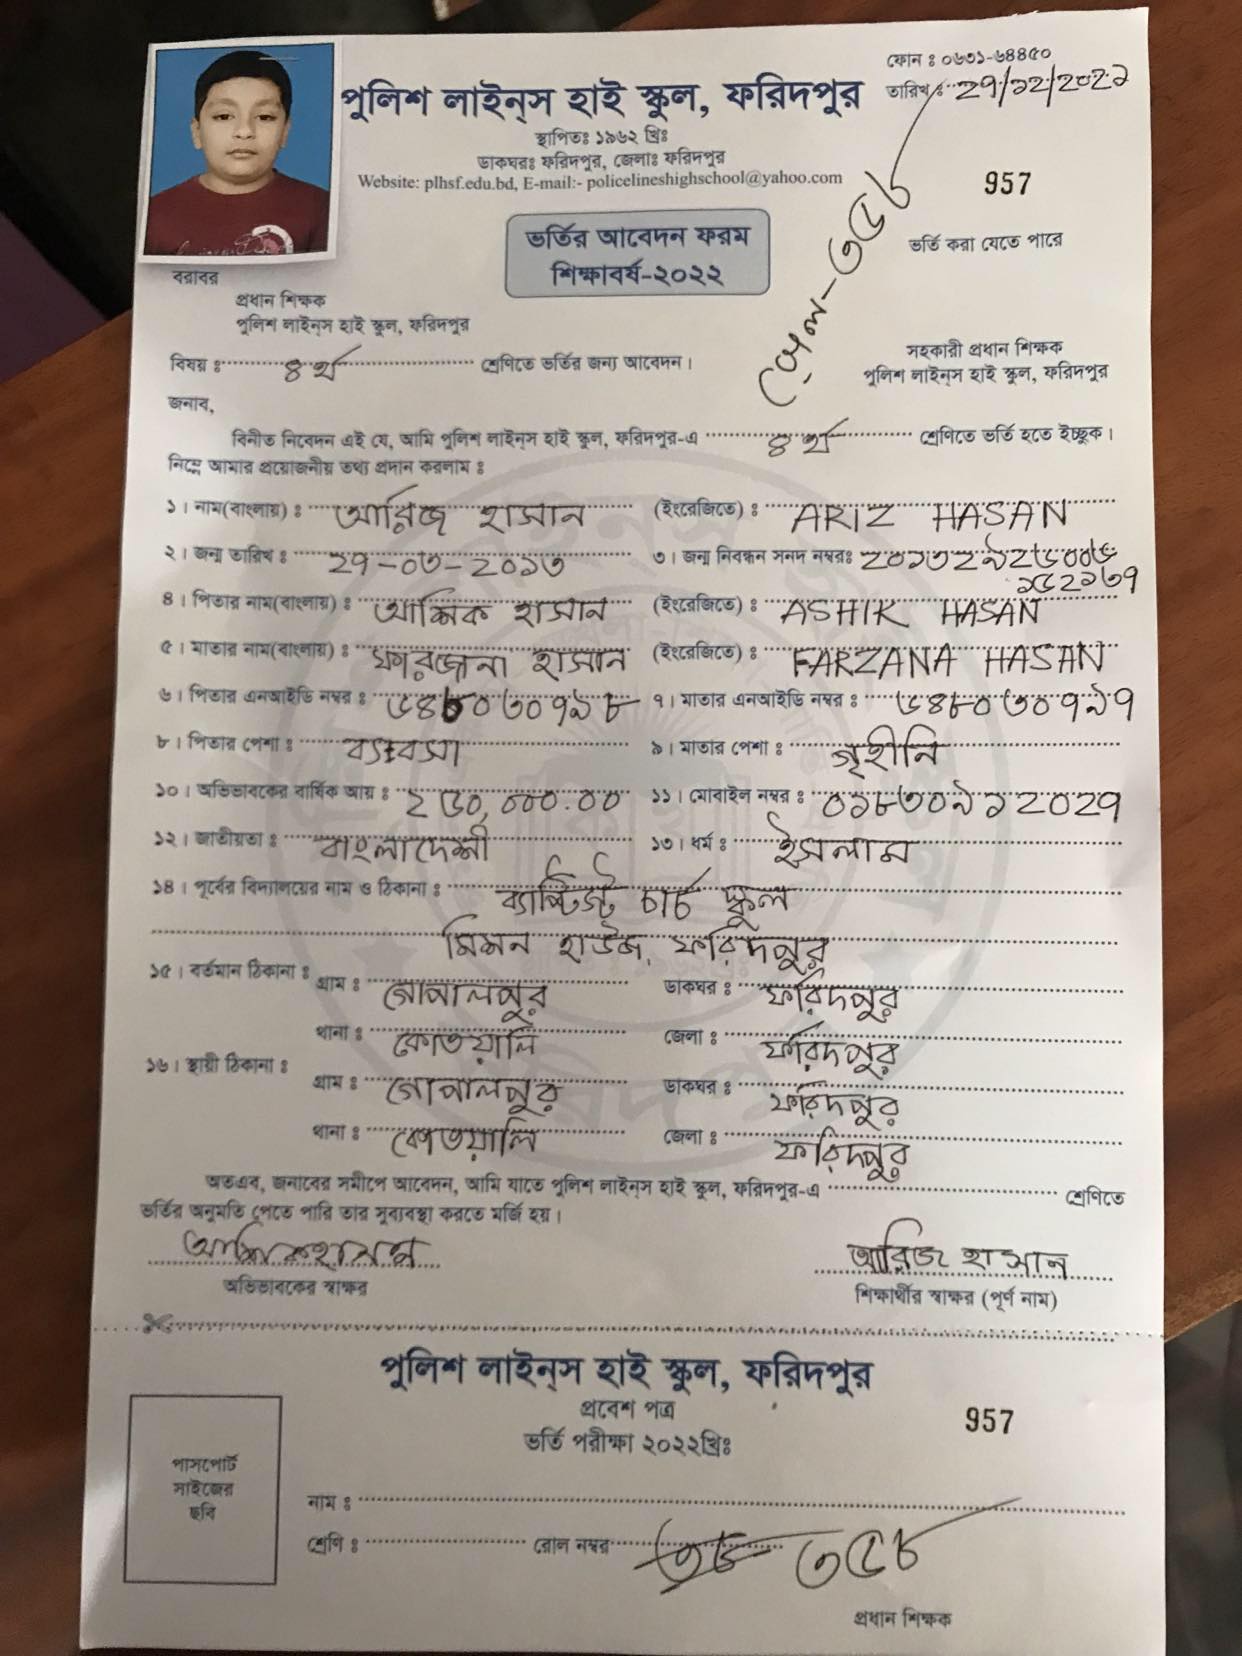 ফোন ঃ ০৬৩১-৬৪৪৫০
পুলিশ লাইন্স হাই স্কুল, ফরিদপুর
তারিখ ঃ ২৭/১২/২০২১
স্থাপিতঃ ১৯৬২ খ্রিঃ
ডাকঘরঃ ফরিদপুর, জেলাঃ ফরিদপুর
Website: plhsf.edu.bd, E-mail:- policelineshighschool@yahoo.com
957
রোল-৩৫৮
ভর্তির আবেদন ফরম
শিক্ষাবর্ষ-২০২২
ভর্তি করা যেতে পারে
বরাবর
প্রধান শিক্ষক
পুলিশ লাইন্স হাই স্কুল, ফরিদপুর
সহকারী প্রধান শিক্ষক
পুলিশ লাইন্স হাই স্কুল, ফরিদপুর
বিষয় ঃ ৪র্থ শ্রেণিতে ভর্তির জন্য আবেদন।
জনাব,
বিনীত নিবেদন এই যে, আমি পুলিশ লাইন্স হাই স্কুল, ফরিদপুর-এ ৪র্থ শ্রেণিতে ভর্তি হতে ইচ্ছুক।
নিম্নে আমার প্রয়োজনীয় তথ্য প্রদান করলাম ঃ
১। নাম(বাংলায়) ঃ আরিজ হাসান (ইংরেজিতে) ঃ ARIZ HASAN
২। জন্ম তারিখ ঃ ২৭-০৩-২০১৩ ৩। জন্ম নিবন্ধন সনদ নম্বরঃ
৪। পিতার নাম(বাংলায়) ঃ আশিক হাসান (ইংরেজিতে) ঃ ASHIK HASAN
৫। মাতার নাম(বাংলায়) ঃ ফারজানা হাসান (ইংরেজিতে) ঃ FARZANA HASAN
৬। পিতার এনআইডি নম্বর ঃ ৭। মাতার এনআইডি নম্বর ঃ
৮। পিতার পেশা ঃ ব্যবসা ৯। মাতার পেশা ঃ গৃহীনি
১০। অভিভাবকের বার্ষিক আয় ঃ ১১। মোবাইল নম্বর ঃ ০১৮৩০৯১২০২৭
১২। জাতীয়তা ঃ বাংলাদেশী ১৩। ধর্ম ঃ ইসলাম
১৪। পূর্বের বিদ্যালয়ের নাম ও ঠিকানা ঃ ব্যাপ্টিস্ট চার্চ স্কুল
মিশন হাউজ, ফরিদপুর
১৫। বর্তমান ঠিকানা ঃ গ্রাম ঃ গোপালপুর ডাকঘর ঃ ফরিদপুর
থানা ঃ কোতয়ালি জেলা ঃ ফরিদপুর
১৬। স্থায়ী ঠিকানা ঃ গ্রাম ঃ গোপালপুর ডাকঘর ঃ ফরিদপুর
থানা ঃ কোতয়ালি জেলা ঃ ফরিদপুর
অতএব, জনাবের সমীপে আবেদন, আমি যাতে পুলিশ লাইন্স হাই স্কুল, ফরিদপুর-এ শ্রেণিতে
ভর্তির অনুমতি পেতে পারি তার সুব্যবস্থা করতে মর্জি হয়।
আরিজ হাসান
অভিভাবকের স্বাক্ষর
শিক্ষার্থীর স্বাক্ষর (পূর্ণ নাম)
পুলিশ লাইন্স হাই স্কুল, ফরিদপুর
প্রবেশ পত্র
957
ভর্তি পরীক্ষা ২০২২খ্রিঃ
পাসপোর্ট
সাইজের
ছবি
নাম ঃ
শ্রেণি ঃ রোল নম্বর ৩৫৮
প্রধান শিক্ষক